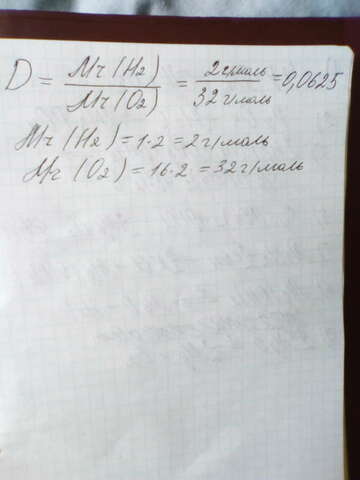 D = Mr(H₂) / Mr(O₂) = 2 г/моль / 32 г/моль = 0,0625
Mr(H₂) = 1·2 = 2 г/моль
Mr(O₂) = 16·2 = 32 г/моль